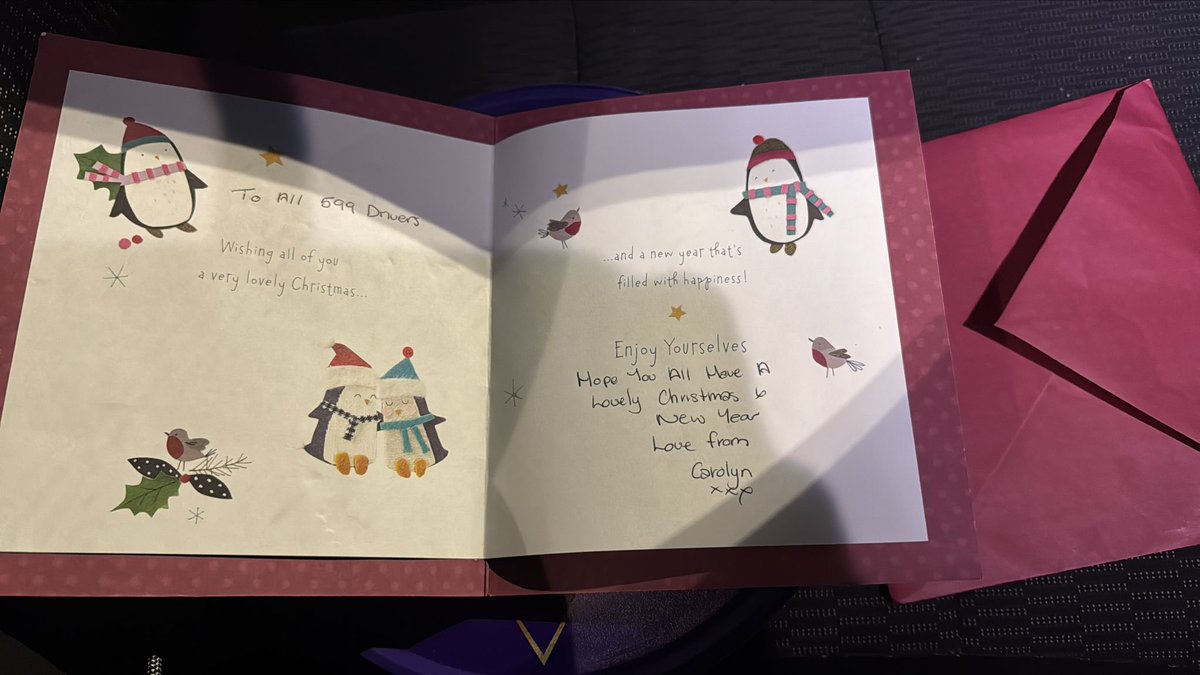 To All 599 Drivers
Wishing all of you
a very lovely Christmas...
...and a new year that's
filled with happiness!
Enjoy Yourselves
Hope You All Have A
Lovely Christmas &
New Year
Love from
Carolyn
xxx